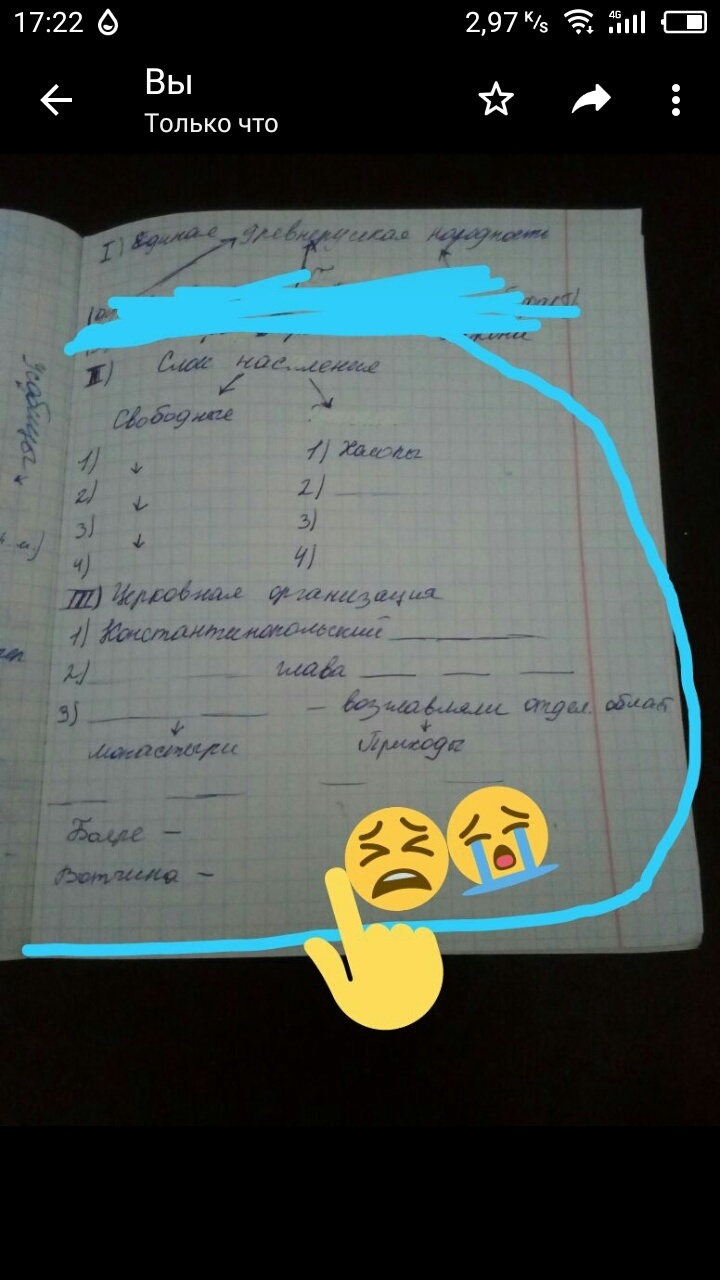 17:22 2,97 K/s 4G
Вы
Только что
I) Единая древнерусская народность
II) Слои населения
Свободные
1) 1) Холопы
2) 2)
3) 3)
4) 4)
III) Церковная организация
1) Константинопольский
2) глава
3) – возглавляли отдел. област
Монастыри Приходы
Бояре –
Вотчина –